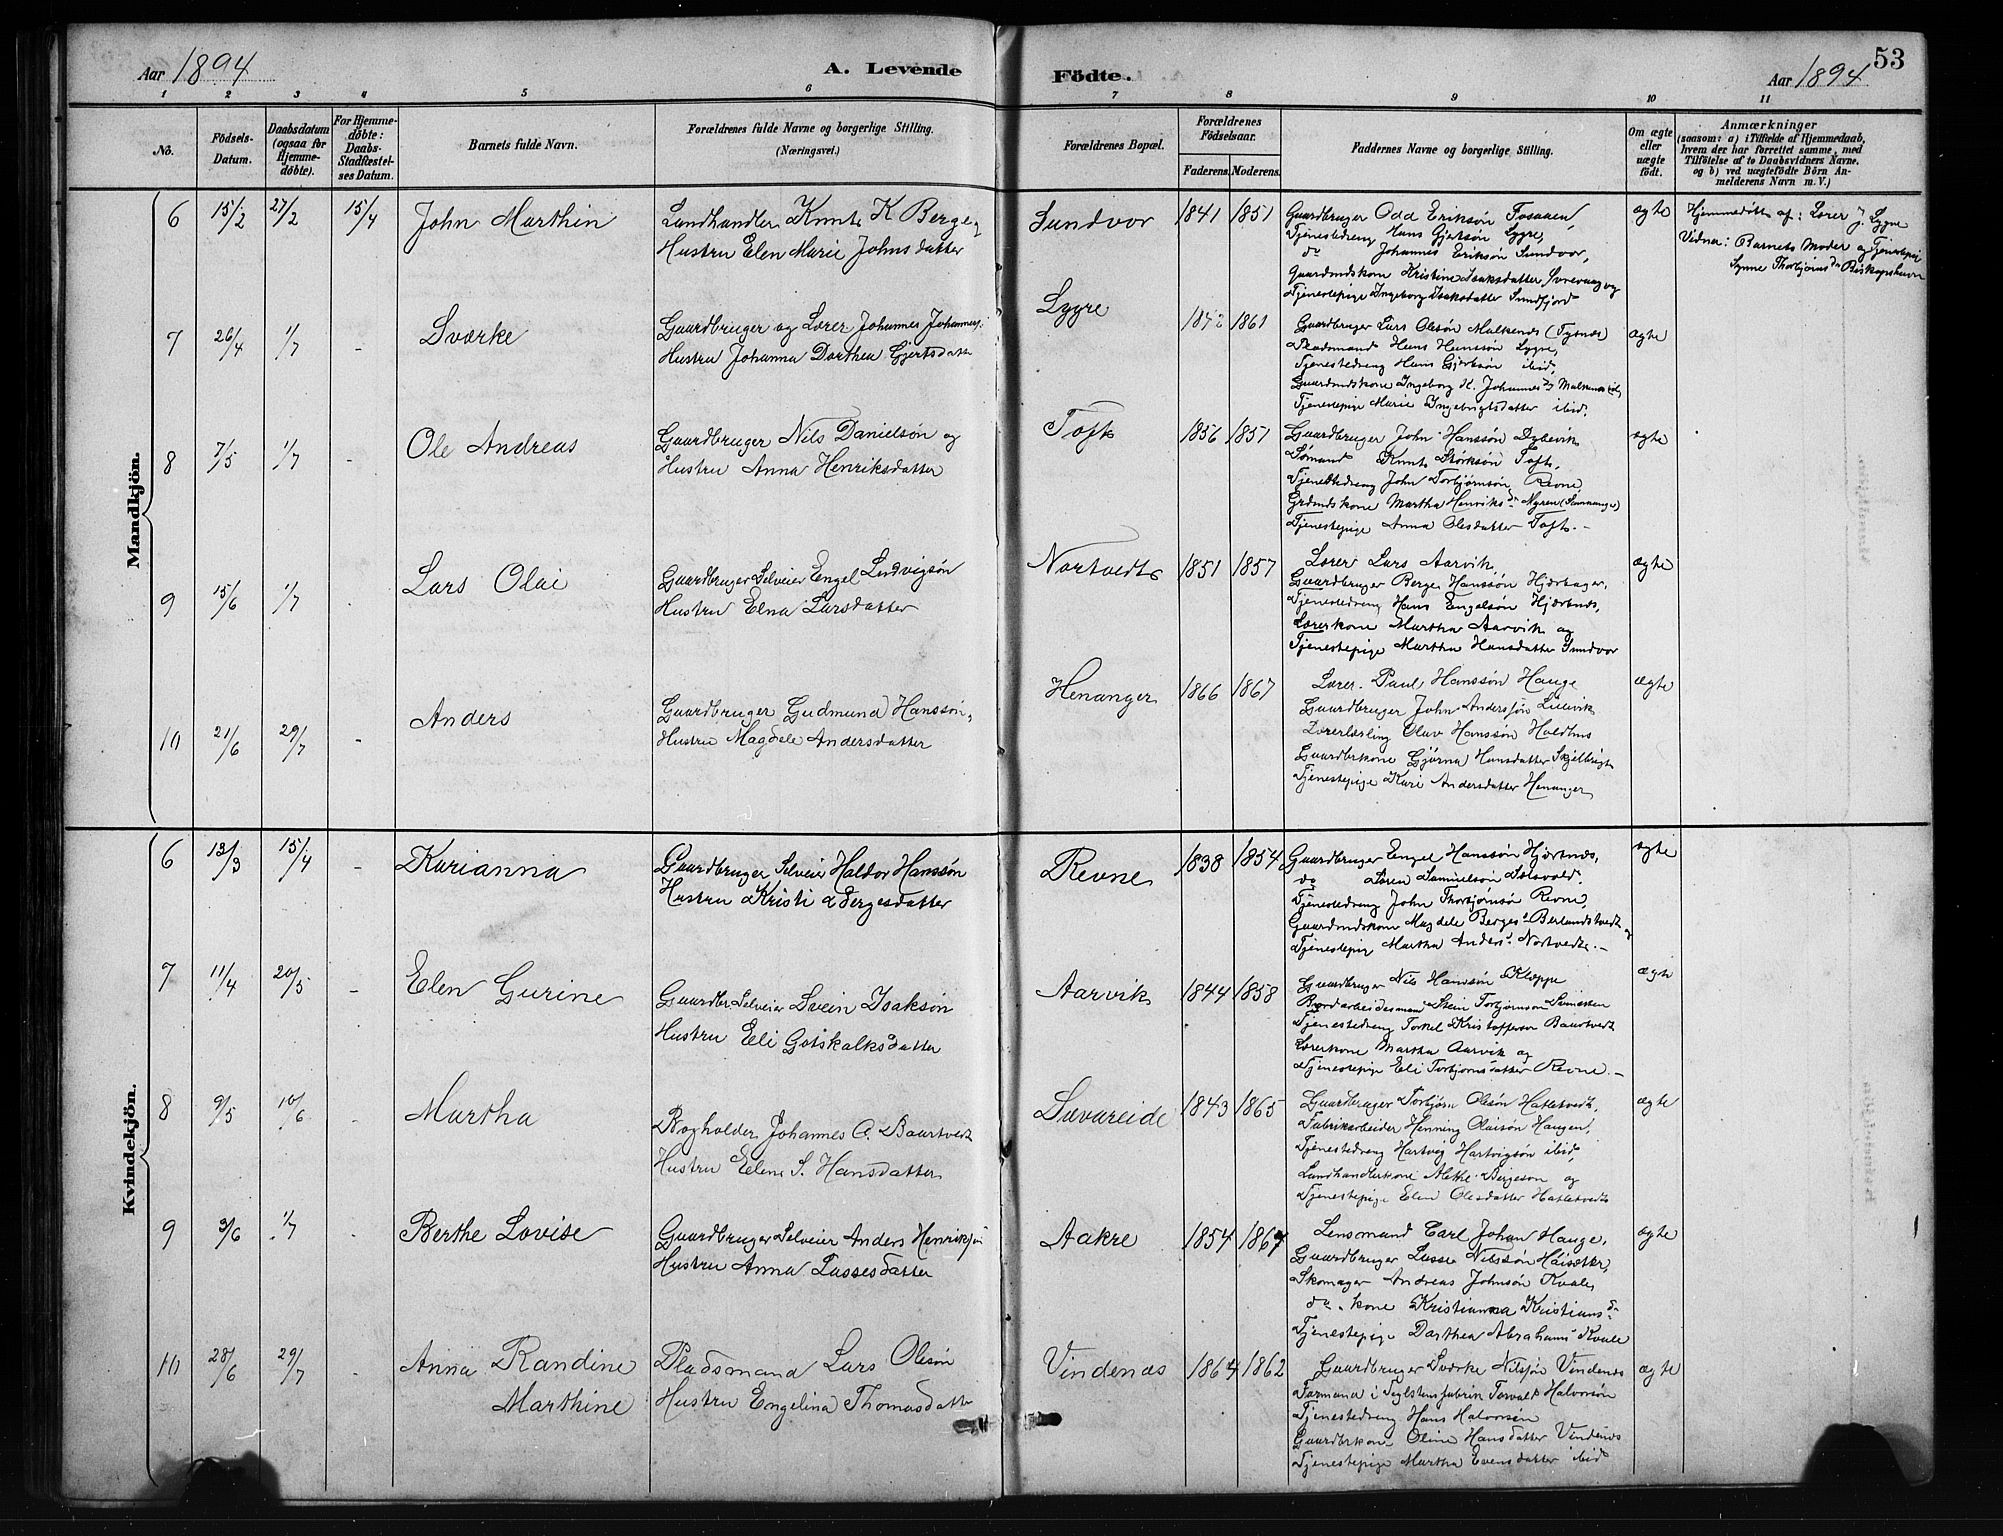 Aar 1894
A. Levende
Födte.
Aar 1894
53
1 2 3 4 5 6 7 8 9 10 11
No.
Födsels-
Datum.
Daabsdatum
(ogsaa for
Hjemme-
döbte).
For Hjemme-
döbte:
Daabs-
Stadfæstel-
ses Datum.
Barnets fulde Navn.
Forældrenes fulde Navne og borgerlige Stilling.
(Næringsvei.)
Forældrenes Bopæl.
Forældrenes
Födselsaar.
Faderens. Moderens.
Faddernes Navne og borgerlige Stilling.
Om ægte
eller
uægte
födt.
Anmærkninger
(saasom: a) i Tilfælde af Hjemmedaab,
hvem der har forrettet samme, med
Tilföielse af to Daabsvidners Navne,
og b) ved uægtefödte Börn An-
melderens Navn m. V.)
Mandkjön.
6 15/2 27/2 15/4 John Marthin
Landhandler Knut K Berge og
Hustru Elen Marie Johnsdatter
Sundvor 1841 1851
Gaardbruger Odd Eriksön Tosaaen,
Tjenestedreng Hans Gjertsön Lygre,
do Johannes Eriksön Sundvor,
Gaardmdskone Kristine Isaksdatter og
Tjenestepige Ingeborg Isaksdatter Sundfjord
ægte
Hjemmedöbt af: Lærer J. Lygre
Vidner: Barnets Moder og Tjenestepige
Synne Thorbjörns dr Biskopshavn
7 26/4 1/7 - Sværke
Gaardbruger og Lærer Johannes Johanness.
Hustru Johanna Dorthea Gjertsdatter
Lygre 1861
Gaardbruger Lars Olesön Malkenes (Tysnes)
Pladsmand Hans Hanssön Lygre,
Tjenestedreng Hans Gjertsön ibid,
Gaardmdskone Ingeborg H. Johannes dr Malkenes
Tjenestepige Marie Ingebrigtsdatter ibid.
ægte
8 7/5 1/7 - Ole Andreas
Gaardbruger Nils Danielsön og
Hustru Anna Henriksdatter
Toft 1856 1851
Gaardbruger John Hanssön Dybevik
Sömand Knut Störksön Toft,
Tjenestedreng John Torbjörnsön Revne,
Grdmdskone Martha Henriks dr Nyren
Tjenestepige Anna Olesdatter Toft. -
ægte
9 15/6 1/7 - Lars Olai
Gaardbruger Selveier Engel Ludvigsön
Hustru Elna Larsdatter
Nortvedt 1851 1857
Lærer Lars Aarvik,
Gaardbruger Berge Hanssön
Tjenestedreng Hans Engelsön Hjærtnes,
Lærerkone Martha Aarvik og
Tjenestepige Martha Hansdatter Sundvor
ægte
10 21/6 29/7 - Anders
Gaardbruger Gudmund Hanssön,
Hustru Magdele Andersdatter
Henanger 1866 1867
Lærer Paul Hanssön Hauge
Gaardbruger John Anderssön
Lærerlærling Olav Hanssön
Gaardbrkone Gjörna Hansdatter
Tjenestepige Kari Andersdatter Henanger
ægte
Kvindekjön.
6 13/3 15/4 - Karianna
Gaardbruger Selveier Haldor Hanssön
Hustru Kristi Bergesdatter
Revne 1838 1854
Gaardbruger Engel Hanssön Hjærtnes,
do Sören Samuelsön
Tjenestedreng John Thorbjörnsö Revne,
Gaardmdskone Magdele Berges d Berlandstvedt og
Tjenestepig Martha Anders d Nortvedt. -
ægte
7 11/4 20/5 - Elen Gurine
Gaardbr. Selveier Svein Isaksön
Hustru Eli Gotskalksdatter
Aarvik 1844 1858
Gaardbruger Nils Hanssön Kleppe
Stein Torbjörnsön
Tjenestedreng Torkel Kristofferson Baartvedt
Lærerkone Martha Aarvik og
Tjenestepige Eli Torbjörnsdatter Revne. -
ægte
8 9/5 10/6 - Martha
Bogholder Johannes O. Baartvedt
Hustru Elene S. Hansdatter
Sævareide 1843 1865
Gaardbruger Torbjörn Olesön Hatletvedt,
Fabrikarbeider Henning Olaisön Haugen,
Tjenestedreng Hartvig Hartvigsön ibid,
Landhandlerkone Mette Bergeson og
Tjenestepige Elen Olesdatter Hatletvedt
ægte
9 3/6 1/7 - Berthe Lovise
Gaardbruger Selveier Anders Henriksön
Hustru Anna Lassesdatter
Aakre 1854 1867
Lensmand Carl Johan Hauge,
Gaardbruger Lasse Nilssön Haisæter,
Skomager Andreas Johnsön Kvale,
do. kone Kristianna Kristians dr
Tjenestepige Dorthea Abrahams d Kvale
ægte
10 28/6 29/7 - Anna Randine
Marthine
Pladsmand Lars Olesön
Hustru Engelina Thomasdatter
Vindenæs 1864 1862
Gaardbruger Sværke Nilsön Vindenes
Formand i Teglstensfabrik Torvald Halvorsön
Tjenestedreng Hans Halvorsön
Gaardbrkone Oline Hansdatter Vindenes
Tjenestepige Martha Evensdatter ibid
ægte